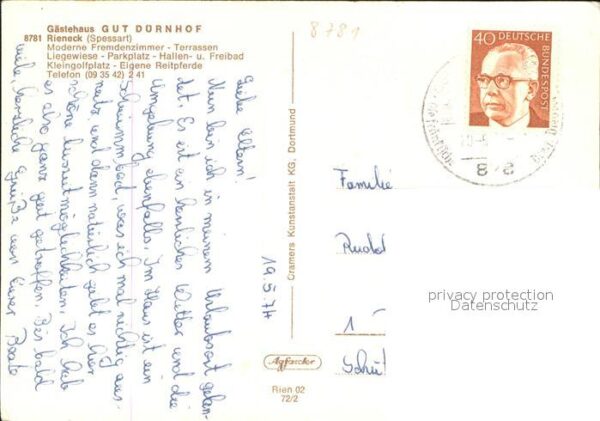 Gästehaus GUT DÜRNHOF
8781 Rieneck (Spessart)
Moderne Fremdenzimmer - Terrassen
Liegewiese - Parkplatz - Hallen- u. Freibad
Kleingolfplatz - Eigene Reitpferde
Telefon (09 35 42) 2 41
8781
40 DEUTSCHE BUNDESPOST
878
19.5.74
Liebe Eltern!
Nun bin ich in meinem Urlaubsort gelan-
det. Es ist ein herrliches Wetter und die
Umgebung ebenfalls. Im Haus ist ein
Schwimmbad, was ich mal richtig aus-
nutz und dann natürlich gibt es hier
schöne Reitmöglichkeiten. Ich hab
es also ganz gut getroffen. Bis bald
viele herzliche Grüße von Eurer Beate
Cramers Kunstanstalt KG, Dortmund
Agfacolor
Rien 02
72/2
Familie
Rudol
1
Schü
privacy protection
Datenschutz